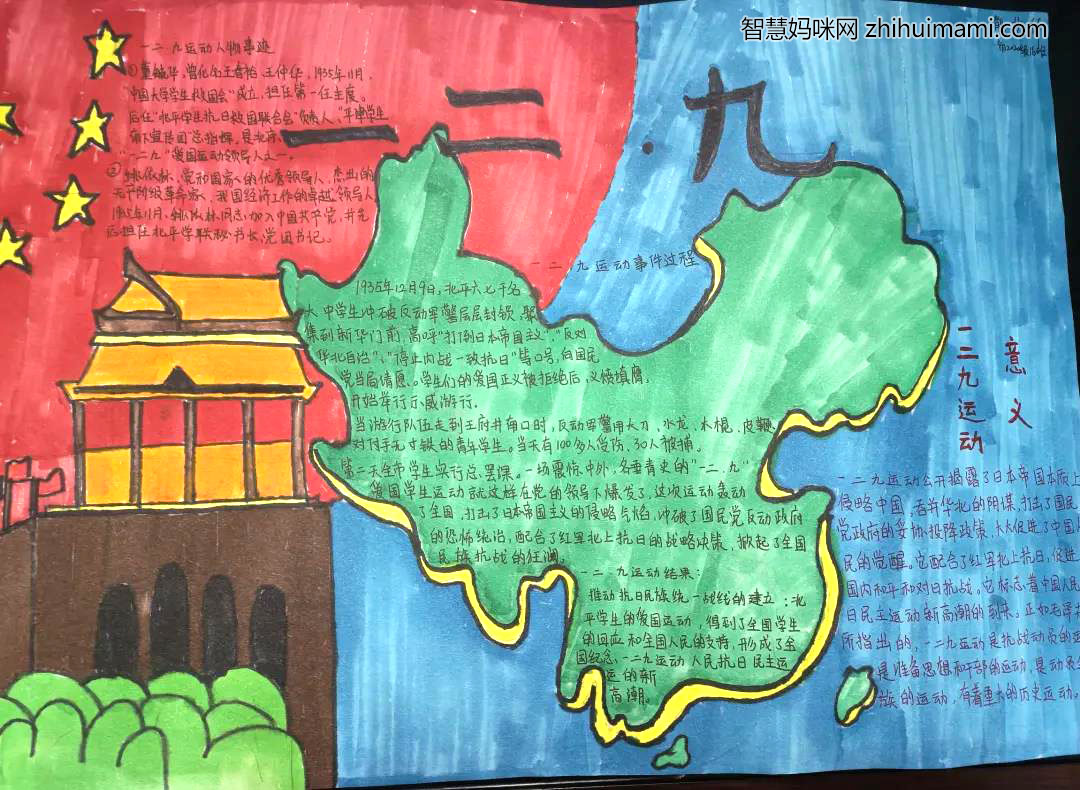 智慧妈咪网 zhihuimami.com
一二·九
一二九运动人物事迹
①董毓华,曾化名王春裕、王仲华,1935年11月,
"中国大学学生救国会"成立,担任第一任主席。
后任"北平学生抗日救国联合会"负责人,"平津学生
南下宣传团"总指挥,是北府、
"一二九"爱国运动领导人之一。
②姚依林,党和国家的优秀领导人,杰出的
无产阶级革命家,我国经济工作的卓越领导人,
1935年11月,姚依林同志加入中国共产党,并先
后担任北平学联秘书长、党团书记。
一二·九运动事件过程
1935年12月9日,北平六七千名
大中学生冲破反动军警层层封锁,聚
集到新华门前,高呼"打倒日本帝国主义","反对
华北自治"、"停止内战一致抗日"等口号,向国民
党当局请愿。学生们的爱国正义被拒绝后,义愤填膺,
开始举行示威游行。
当游行队伍走到王府井南口时,反动军警用大刀,水龙,木棍,皮鞭
对付手无寸铁的青年学生。当天有100多人受伤、30人被捕。
第二天全市学生实行总罢课。一场震惊中外,名垂青史的"一二·九"
爱国学生运动就这样在党的领导下爆发了,这次运动轰动
了全国,打击了日本帝国主义的侵略气焰,冲破了国民党反动政府
的恐怖统治,配合了红军北上抗日的战略决策,掀起了全国
民族抗战的狂澜。
一二·九运动结果:
推动抗日民族统一战线的建立;北
平学生的爱国运动,得到了全国学生
的回应和全国人民的支持,形成了全
国纪念,一二九运动人民抗日民主运
运的新
高潮。
一二九运动
意义
一二九运动公开揭露了日本帝国本质上
侵略中国,吞并华北的阴谋,打击了国民
党政府的妥协投降政策,大大促进了中国人
民的觉醒。它配合了红军北上抗日,促进
国内和平和对日抗战。它标志着中国人民
日民主运动新高潮的到来。正如毛泽
所指出的,一二九运动是抗战动员的运
是准备思想和干部的运动,是动员全
族的运动,有着重大的历史运动。